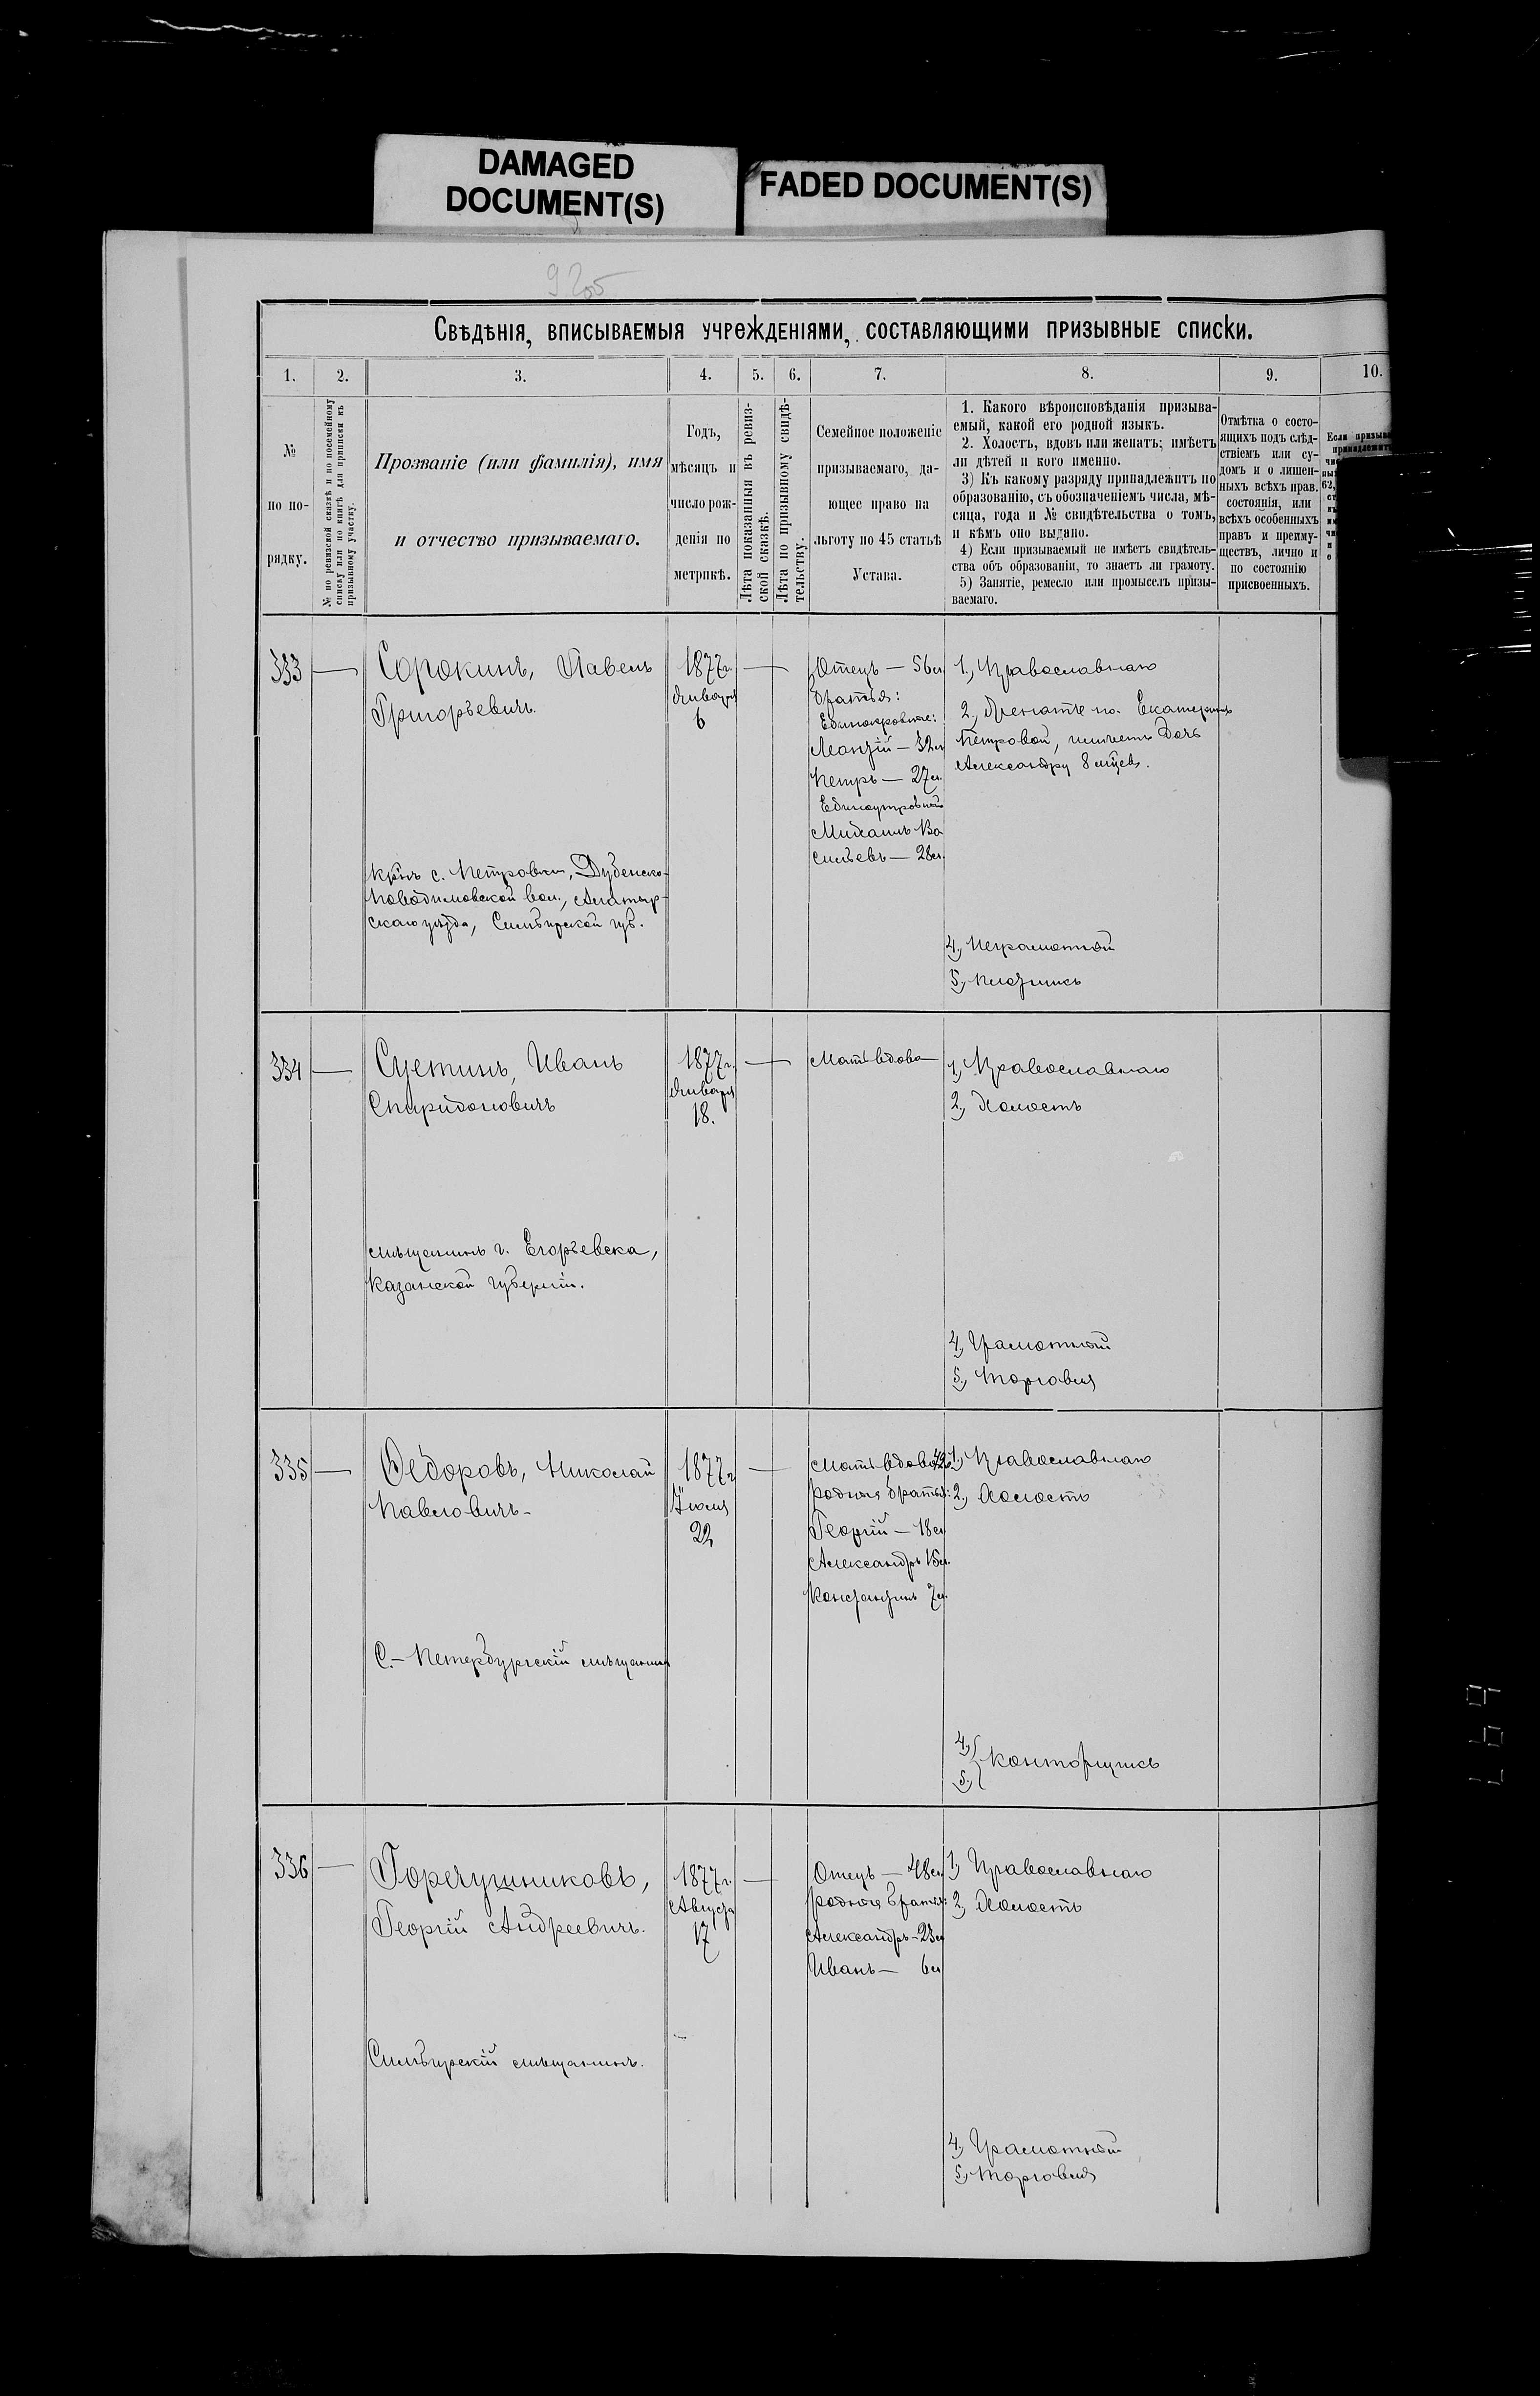 DAMAGED
DOCUMENT(S)
FADED DOCUMENT(S)
Свѣдѣнія, вписываемыя учрежденіями, составляющими призывные списки.
1.
2.
3.
4.
5.
6.
7.
8.
9.
10.
№
по по-
рядку.
№ по ревизской сказкѣ и по посемейному
списку или по книгѣ для приписки къ
призывному участку.
Прозваніе (или фамилія), имя
и отчество призываемаго.
Годъ,
мѣсяцъ и
число рож-
денія по
метрикѣ.
Лѣта показанныя въ ревиз-
ской сказкѣ.
Лѣта по призывному свидѣ-
тельству.
Семейное положеніе
призываемаго, да-
ющее право на
льготу по 45 статьѣ
Устава.
1. Какого вѣроисповѣданія призыва-
емый, какой его родной языкъ.
2. Холостъ, вдовъ или женатъ; имѣетъ
ли дѣтей и кого именно.
3) Къ какому разряду принадлежитъ по
образованію, съ обозначеніемъ числа, мѣ-
сяца, года и № свидѣтельства о томъ,
и кѣмъ оно выдано.
4) Если призываемый не имѣетъ свидѣтель-
ства объ образованіи, то знаетъ ли грамоту.
5) Занятіе, ремесло или промыселъ призы-
ваемаго.
Отмѣтка о состо-
ящихъ подъ слѣд-
ствіемъ или су-
домъ и о лишен-
ныхъ всѣхъ прав.
состоянія, или
всѣхъ особенныхъ
правъ и преиму-
ществъ, лично и
по состоянію
присвоенныхъ.
Если
333
Сорокинъ, Павелъ
Григорьевичъ.
крнъ с. Петровки, Дубенско-
Поводимовской вол., Алатыр-
скаго уѣзда, Симбирской губ.
1877 г.
Января
6
Отецъ — 56 л
братья:
Единокровные:
— 32 л
Петръ — 27 л.
Единоутробный
Михаилъ Ва
сильевъ — 28 л.
1., Православнаго
2., Женатъ на Екатеринѣ
Петровой, имѣетъ дочь
Александру 8 мѣсев.
4., Неграмотный
5., Плотникъ
334
Счетинъ, Иванъ
Спиридоновичъ
мѣщанинъ г. Егорьевска,
Казанской губерніи.
1877 г.
Января
18.
Мать вдова
1., Православнаго
2., Холостъ
4., Грамотный
5., Торговля
335
Ѳедоровъ, Николай
Павловичъ
С.-Петербургскій мѣщанинъ
1877 г
Іюля
22
Мать вдова 42 л
родные братья:
Георгій — 18 л
Александръ 15 л.
Константинъ 7 л.
1., Православнаго
2., Холостъ
4.,
5., Конторщикъ
336
Горчушниковъ,
Георгій Андреевичъ.
Симбирскій мѣщанинъ.
1877 г.
Августа
17
Отецъ — 48 л
родные братья:
Александръ — 23 л
Иванъ — 6 л
1., Православнаго
2., Холостъ
4., Грамотный
5., Торговля
697